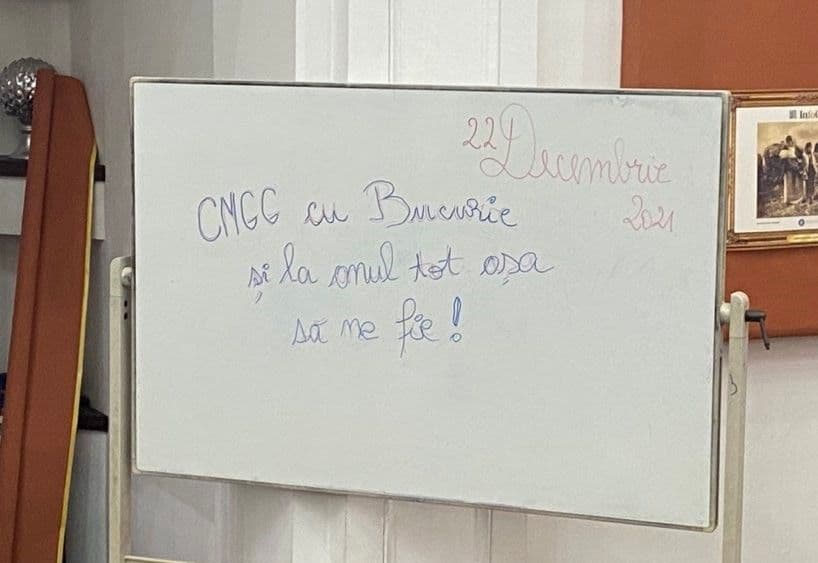 22 Decembrie
2021
CMGG cu Bucurie
și la anul tot așa
să ne fie!